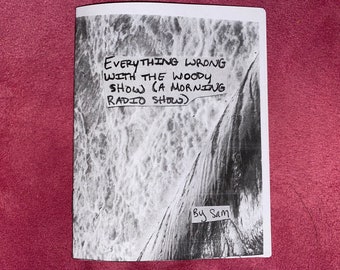 EVERYTHING WRONG
WITH THE WOODY
SHOW (A MORNING
RADIO SHOW)
By Sam